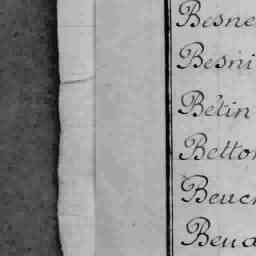 Besne
Besni
Bétin
Betton
Beuc
Beud